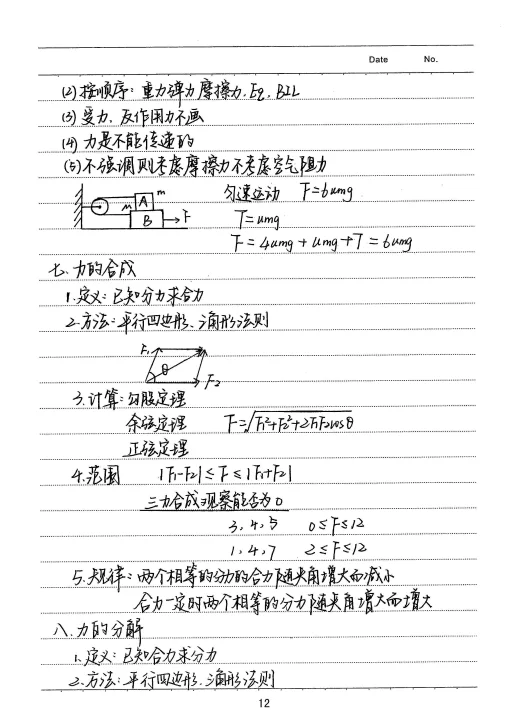 Date No.
(2) 按顺序：重力弹力摩擦力.Eq.BIL
(3) 受力、反作用力不画
(4) 力是不能传递的
(5) 不强调则考虑摩擦力不考虑空气阻力
m A M B F 匀速运动 F=6μmg
T=μmg
F=4μmg+μmg+T=6μmg
七、力的合成
1.定义：已知分力求合力
2.方法：平行四边形、三角形法则
F₁ θ F₂
3.计算：勾股定理
余弦定理 F=√F₁²+F₂²+2F₁F₂cosθ
正弦定理
4.范围 |F₁-F₂|≤F≤|F₁+F₂|
三力合成观察能否为0
3,4,5 0≤F≤12
1,4,7 2≤F≤12
5.规律：两个相等的分力的合力随夹角增大而减小
合力一定时两个相等的分力随夹角增大而增大
八、力的分解
1.定义：已知合力求分力
2.方法：平行四边形.三角形法则
12